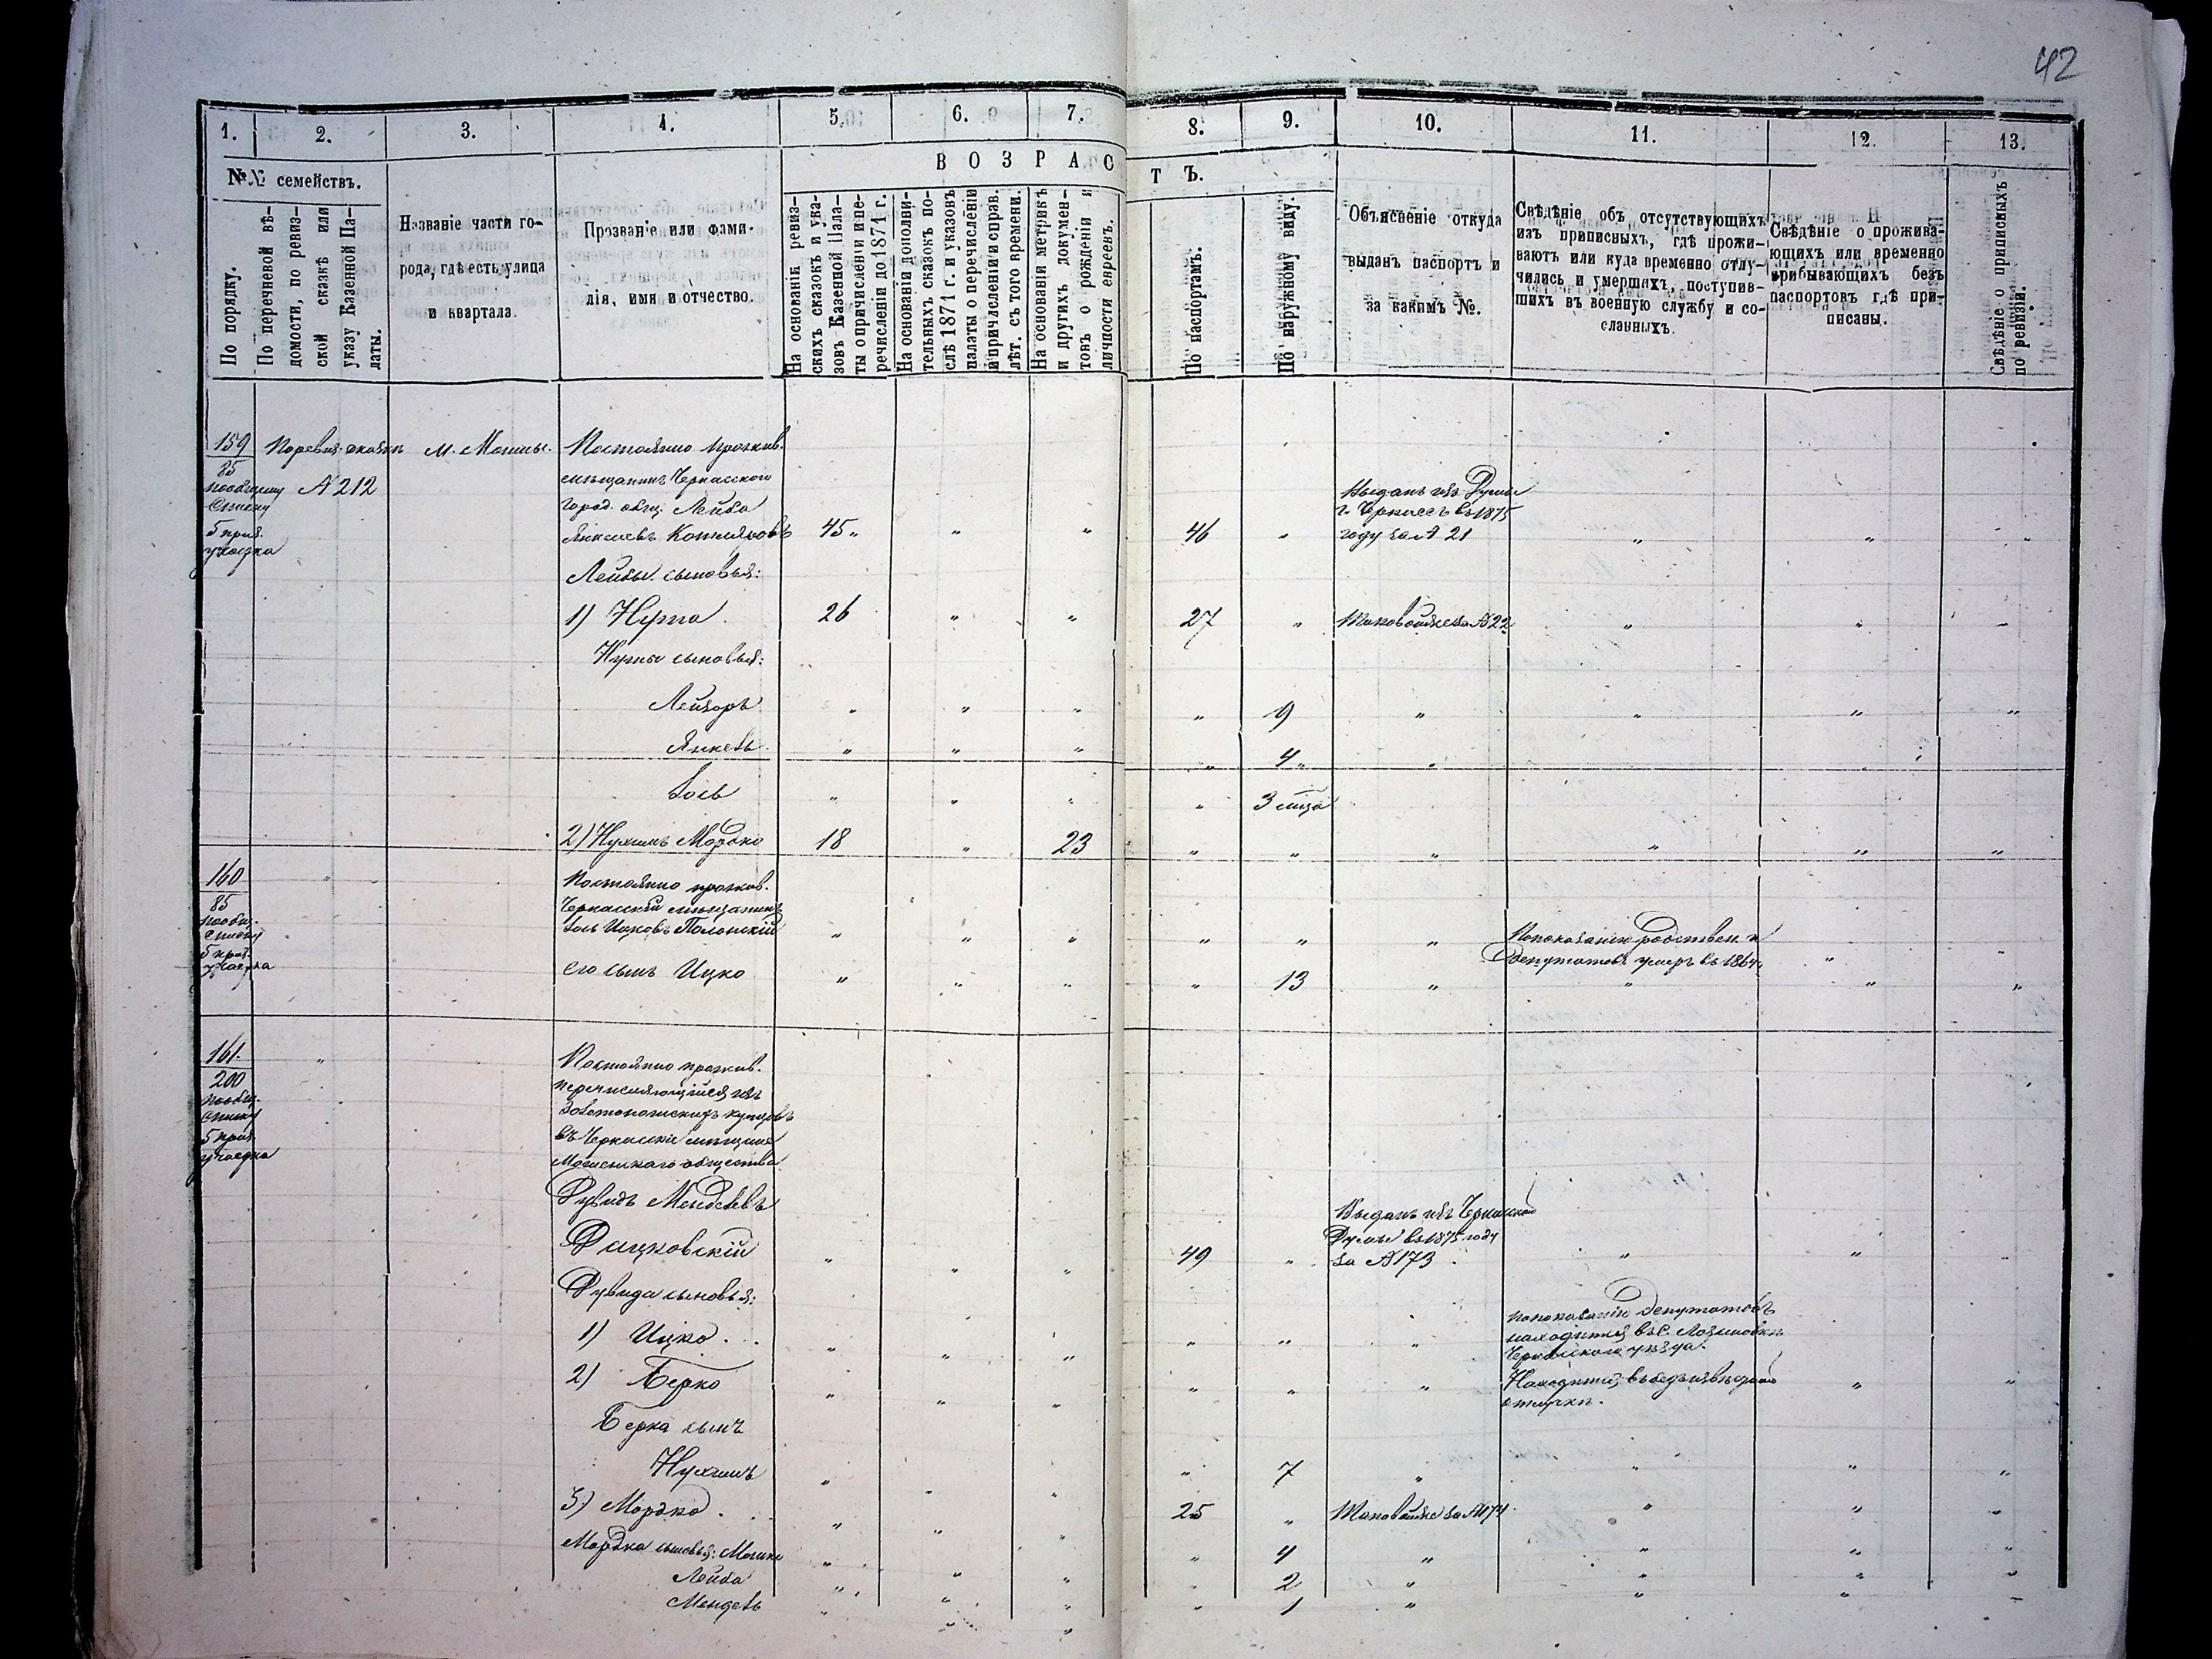 42
1. 2. 3. 4. 5. 6. 7. 8. 9. 10. 11. 12. 13.
№№ семействъ.
ВОЗРАСТЪ.
По порядку.
По перечневой вѣ-
домости, по ревиз-
ской сказкѣ или
указу Казенной Па-
латы.
Названіе части го-
рода, гдѣ есть улица
и квартала.
Прозваніе или фами-
лія, имя и отчество.
На основаніи ревиз-
скихъ сказокъ и ука-
зовъ Казенной Пала-
ты о причисленіи и пе-
речисленіи до 1871 г.
На основаніи дополни-
тельныхъ сказокъ по-
слѣ 1871 г. и указовъ
палаты о перечисленіи
и причисленіи и справ.
лѣт. съ того времени.
На основаніи метрикъ
и другихъ докумен-
товъ о рожденіи и
личности евреевъ.
По паспортамъ.
По наружному виду.
Объясненіе откуда
выданъ паспортъ и
за какимъ №.
Свѣдѣніе объ отсутствующихъ
изъ приписныхъ, гдѣ прожи-
ваютъ или куда временно отлу-
чились и умершихъ, поступив-
шихъ въ военную службу и со-
сланныхъ.
Свѣдѣніе о прожива-
ющихъ или временно
прибывающихъ безъ
паспортовъ гдѣ при-
писаны.
Свѣдѣніе о приписныхъ
по ревизіи.
159 По ревиз. сказкѣ м. Мошны. Постоянно прожив.
85
по общему № 212 мѣщанинъ Черкасского
списку город. общ. Лейба
5 приз. Янкелевъ 45 " " 46 "
участка
Выданъ изъ Думы
г. Черкассъ въ 1875
году за № 21 " " "
Лейбы сыновья:
1) Нута 26 " " 27 " Таковой же за № 22 " " "
Нуты сыновья:
Лейзоръ " " " " 9 " " " "
Янкель " " " " 4 " "
Іось " " " " 3 мѣся
2) Нухимъ Мордко 18 " 23 " " " " " "
160 " Постоянно прожив.
85
по общ. Черкасскій мѣщанинъ
списку Іось Ицковъ Полонскій " " " " " "
5 приз.
участка
По показанію родствен. и
депутатовъ умеръ въ 1864 " "
его сынъ Ицко " " " " 13 " " " "
161. " Постоянно прожив.
200
по общ. перечисляющійся изъ
списку Золотоношскихъ купцовъ
5 приз. въ Черкасскіе мѣщане
участка Мошенскаго общества
Дувидъ Менделевъ
Дацковскій " " " 49 "
Выданъ изъ Черкасской
Думы въ 1875 году
за № 173 " " "
Дувида сыновья:
1) Ицко " " " " " "
По показанію депутатовъ
находится въ с.
Черкасскаго уѣзда.
2) Берко " " " " " "
Находится въ безъизвѣстной
отлучкѣ. " "
Берка сынъ
Нухимъ " " " " 7 " " " "
3) Мордко " " " 25 " Таковой же за № 174 " " "
Мордка сыновья: " " " " 4 " " " "
Лейба " " " " 2 " " " "
Мендель " " " " 1 " " "